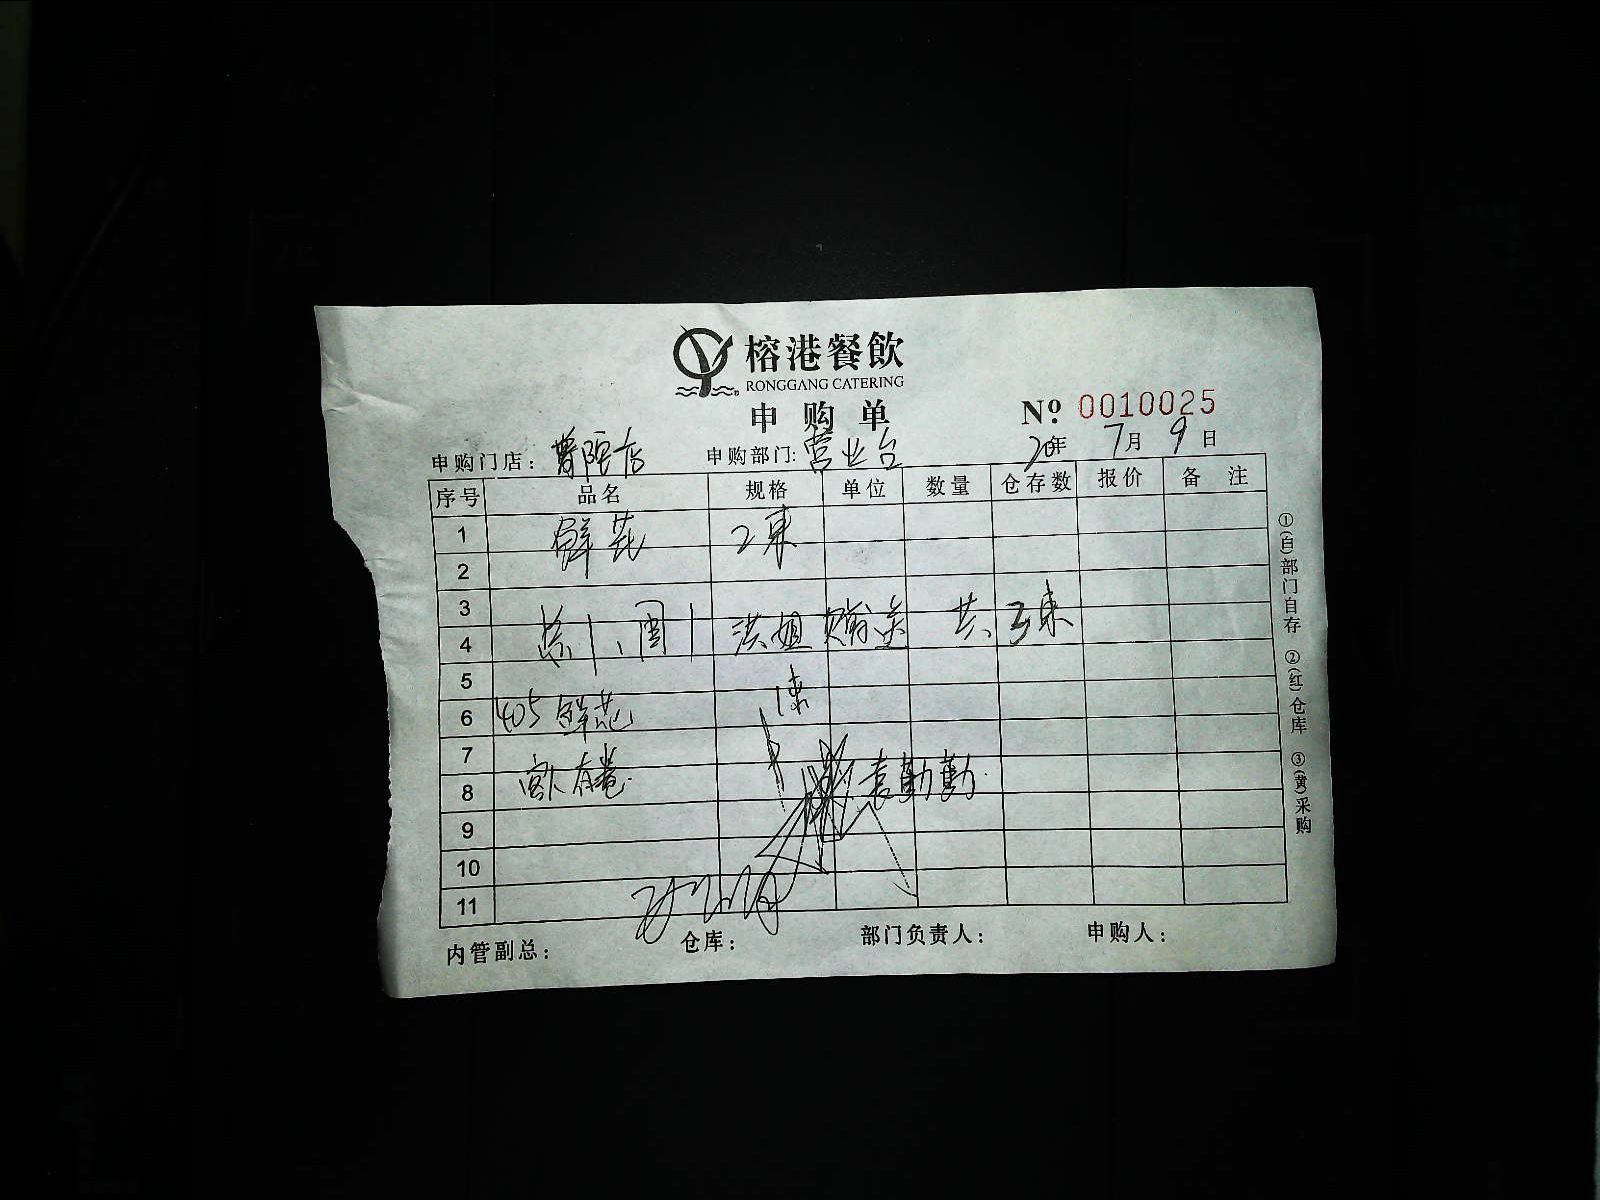 榕港餐飲
RONGGANG CATERING
申购单
№ 0010025
申购门店： 店 申购部门: 营业台 20年 7月 9日
序号 品名 规格 单位 数量 仓存数 报价 备 注
1 鲜花 2束
2
3
4 洪姐 赠送 共 3束
5
6 405 鲜花 1束
7
8 袁勤勤
9
10
11
内管副总： 仓库： 部门负责人： 申购人：
①(白)部门自存 ②(红)仓库 ③(黄)采购